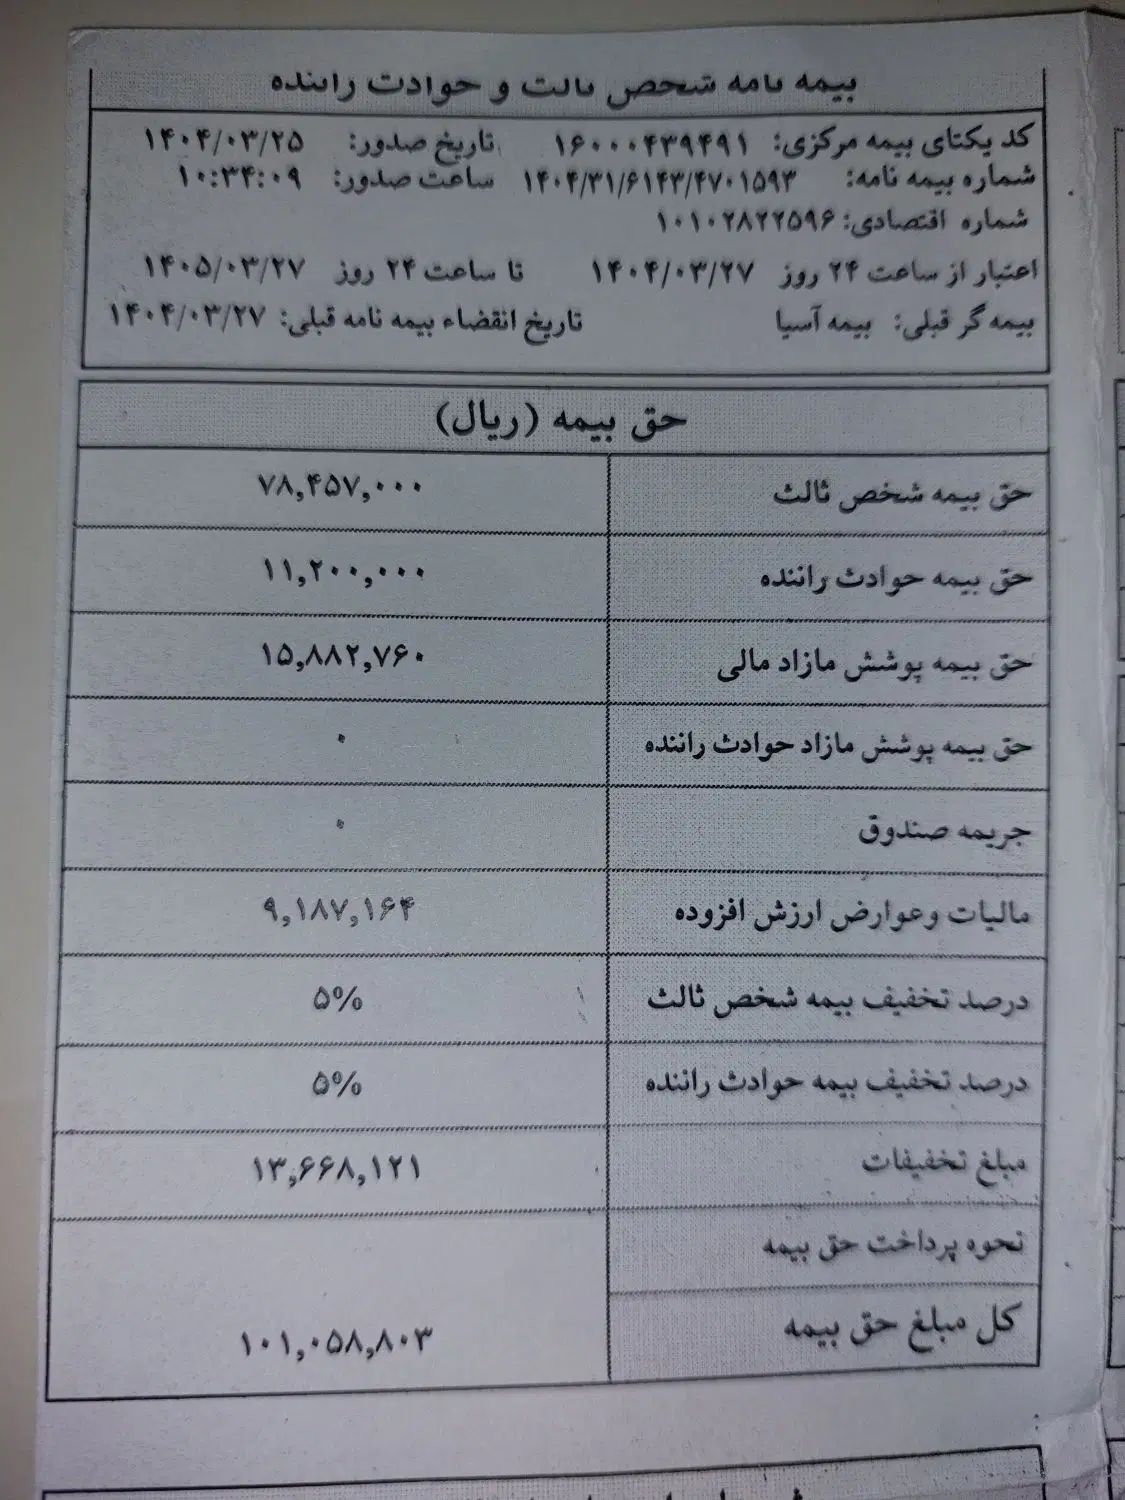 بیمه نامه شخص ثالث و حوادث راننده
کد یکتای بیمه مرکزی: ۱۶۰۰۰۴۳۹۴۹۱ تاریخ صدور: ۱۴۰۴/۰۳/۲۵
شماره بیمه نامه: ۱۴۰۴/۳۱/۶۱۴۳/۴۷۰۱۵۹۳ ساعت صدور: ۱۰:۳۴:۰۹
شماره اقتصادی: ۱۰۱۰۲۸۲۲۵۹۶
اعتبار از ساعت ۲۴ روز ۱۴۰۴/۰۳/۲۷ تا ساعت ۲۴ روز ۱۴۰۵/۰۳/۲۷
بیمه گر قبلی: بیمه آسیا تاریخ انقضاء بیمه نامه قبلی: ۱۴۰۴/۰۳/۲۷
حق بیمه (ریال)
حق بیمه شخص ثالث ۷۸,۴۵۷,۰۰۰
حق بیمه حوادث راننده ۱۱,۲۰۰,۰۰۰
حق بیمه پوشش مازاد مالی ۱۵,۸۸۲,۷۶۰
حق بیمه پوشش مازاد حوادث راننده ۰
جریمه صندوق ۰
مالیات وعوارض ارزش افزوده ۹,۱۸۷,۱۶۴
درصد تخفیف بیمه شخص ثالث ۵%
درصد تخفیف بیمه حوادث راننده ۵%
مبلغ تخفیفات ۱۳,۶۶۸,۱۲۱
نحوه پرداخت حق بیمه
کل مبلغ حق بیمه ۱۰۱,۰۵۸,۸۰۳